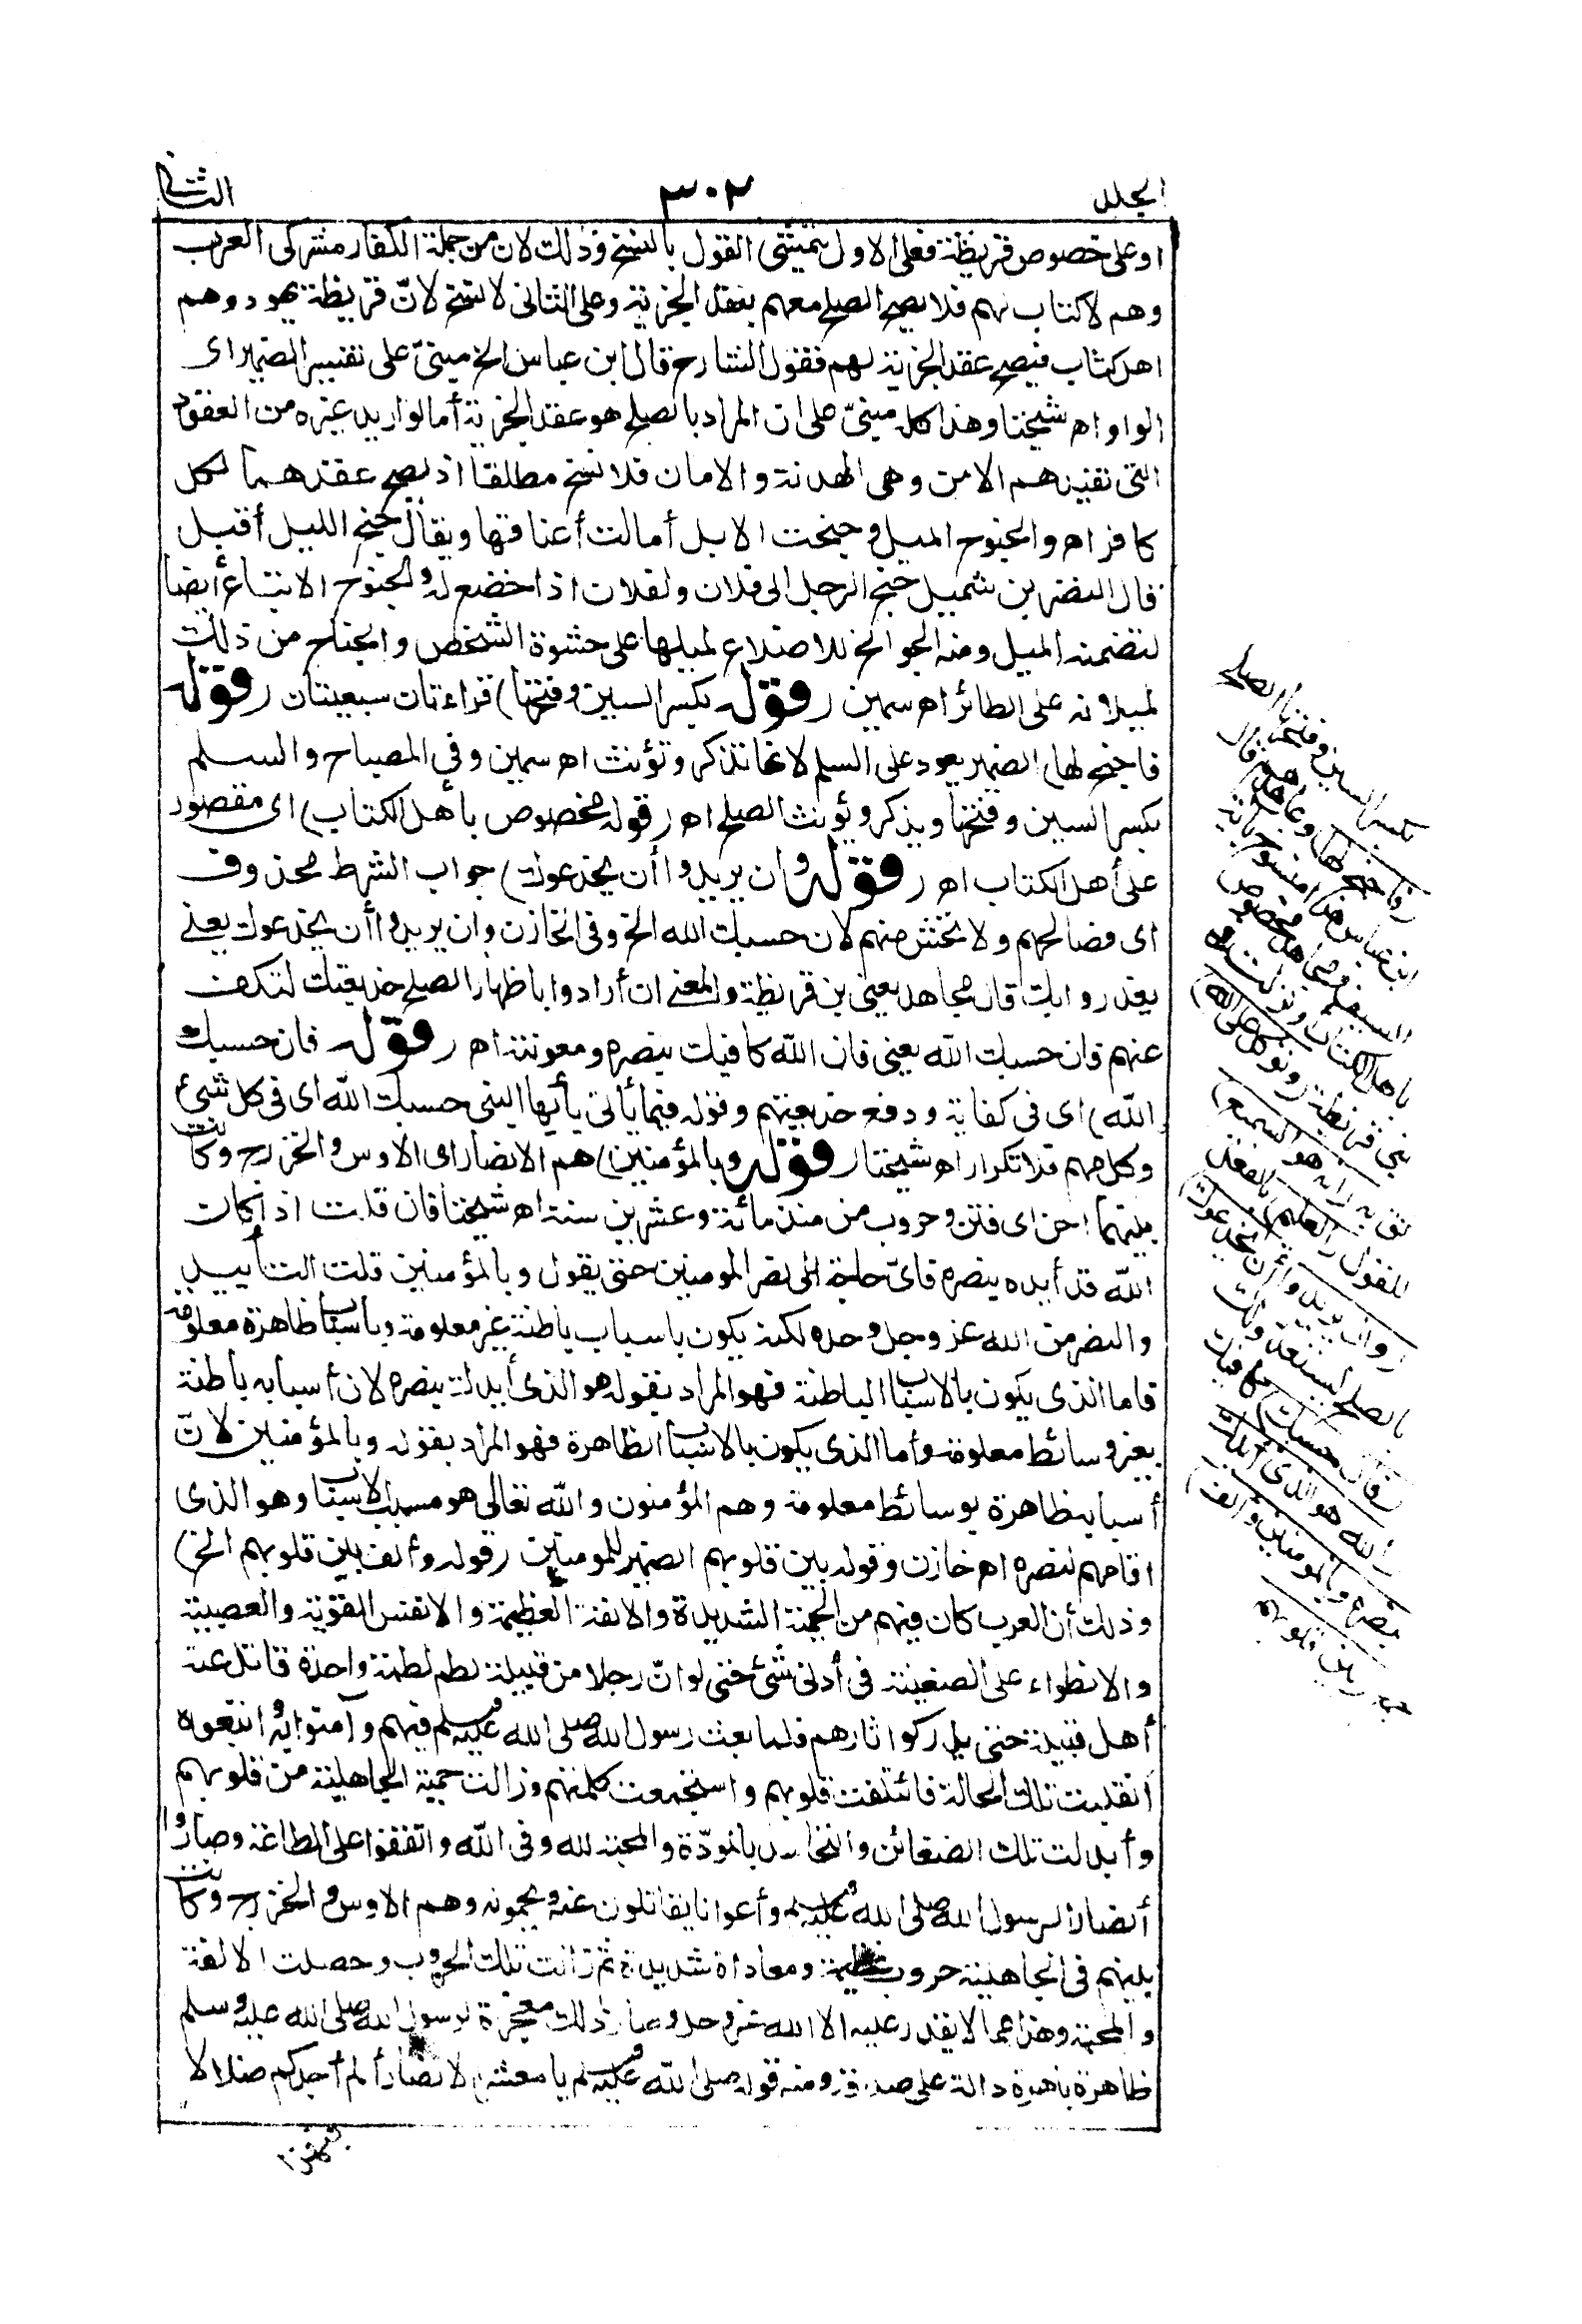 الجلد
٣٠٢
الثانى
او على خصوص قريظة فعلى الاول يتمشى القول بالنسخ وذلك لان من جملة الكفار مشركى العرب
وهم لا كتاب لهم فلا يصح الصلح معهم بعقد الجزية وعلى الثانى لا نسخ لانّ قريظة يهود وهم
اهل كتاب فيصح عقد الجزية لهم فقول الشارح قال ابن عباس الخ مبنىّ على تفسير الضمير اى
الواو اهـ شيخنا وهذا كله مبنىّ على ان المراد بالصلح هو عقد الجزية أما لو اريد غيره من العقود
التى تفيدهم الامن وهى الهدنة والامان فلا نسخ مطلقا اذ يصح عقدهما لكل
كافر اهـ والجنوح الميل وجنحت الابل أمالت أعناقها ويقال جنح الليل أقبل
قال النضر بن شميل جنح الرجل الى فلان ولفلان اذا خضع له والجنوح الاتباع أيضا
لتضمنه الميل ومنه الجوانح للاضلاع لميلها على حشوة الشخص والجناح من ذلك
لميلانه على الطائر اهـ سمين (قوله بكسر السين وفتحها) قراءتان سبعيتان (قوله
فاجنح لها) الضمير يعود على السلم لانها تذكر وتؤنث اهـ سمين وفى المصباح والسلم
بكسر السين وفتحها ويذكر ويؤنث الصلح اهـ (قوله مخصوص بأهل الكتاب) اى مقصور
على أهل الكتاب اهـ (قوله وان يريدوا أن يخدعوك) جواب الشرط محذوف
اى فصالحهم ولا تخش منهم لان حسبك الله الخ وفى الخازن وان يريدوا أن يخدعوك يعنى
يغدروا بك قال مجاهد يعنى بن قريظة والمعنى ان أرادوا باظهار الصلح خديعتك لتكف
عنهم فان حسبك الله يعنى فان الله كافيك بنصره ومعونته اهـ (قوله فان حسبك
الله) اى فى كفاية ودفع خديعتهم وقوله فيما يأتى يأيها النبى حسبك الله اى فى كل شئ
وكل مهم فلا تكرار اهـ شيخنا (قوله وبالمؤمنين) هم الانصار اى الاوس والخزرج وكانت
بينهما احن اى فتن وحروب من منذ مائة وعشرين سنة اهـ شيخنا فان قلت اذا كان
الله قد أيده بنصره فاىّ حاجة الى نصر المومنين حتى يقول وبالمؤمنين قلت التأييد
والنصر من الله عز وجل وحده لكنه يكون باسباب باطنة غير معلومة وبأسباب ظاهرة معلومة
فاما الذى يكون بالاسباب الباطنة فهو المراد بقوله هو الذى أيدك بنصره لان أسبابه باطنة
بغير وسائط معلومة وأما الذى يكون بالاسباب الظاهرة فهو المراد بقوله وبالمؤمنين لانّ
أسبابه ظاهرة بوسائط معلومة وهم المؤمنون والله تعالى هو مسبب الاسباب وهو الذى
اقامهم لنصره اهـ خازن وقوله بين قلوبهم الضمير للمومنين (قوله وألف بين قلوبهم الخ)
وذلك أن العرب كان فيهم من الحمية الشديدة والانفة العظيمة والانفس القوية والعصبية
والانطواء على الضغينة فى أدنى شئ حتى لو انّ رجلا من قبيلة لطم لطمة واحدة قاتل عنه
أهل قبيلته حتى يدركوا ثارهم فلما بعث رسول الله صلى الله عليه وسلم فيهم وآمنوا به واتبعوه
انقلبت تلك الحالة فائتلفت قلوبهم واستجمعت كلمتهم وزالت حمية الجاهلية من قلوبهم
وأبدلت تلك الضغائن والتحاسد بالمودّة والمحبة لله وفى الله واتفقوا على الطاعة وصاروا
أنصارا لرسول الله صلى الله عليه وسلم وأعوانا يقاتلون عنه ويحمونه وهم الاوس والخزرج وكانت
بينهم فى الجاهلية حروب عظيمة ومعاداة شديدة ثم زالت تلك الحروب وحصلت الالفة
والمحبة وهذا مما لا يقدر عليه الا الله عز وجل وصار ذلك معجزة لرسول الله صلى الله عليه وسلم
ظاهرة باهرة دالة على صدقه ومنه قوله صلى الله عليه وسلم يا معشر الانصار ألم أجدكم ضلالا
بكسر السين وفتحها الصلح
(فاجنح لها) وعاهدهم قال
ابن عباس هذا منسوخ بآية
السيف ومجاهد مخصوص
باهل الكتاب ونزلت فى
بنى قريظة (وتوكل على الله)
ثق به (انه هو السميع)
للقول (العليم) بالفعل
(وان يريدوا أن يخدعوك)
بالصلح ليستعدوا لك
(فان حسبك) كافيك
(الله هو الذى أيدك
بنصره وبالمومنين وألف)
جمع (بين قلوبهم